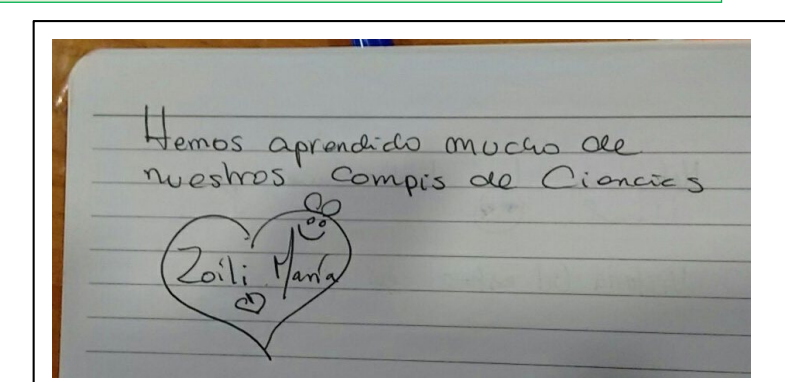 Hemos aprendido mucho de
nuestros compis de Ciencias
Zoili María